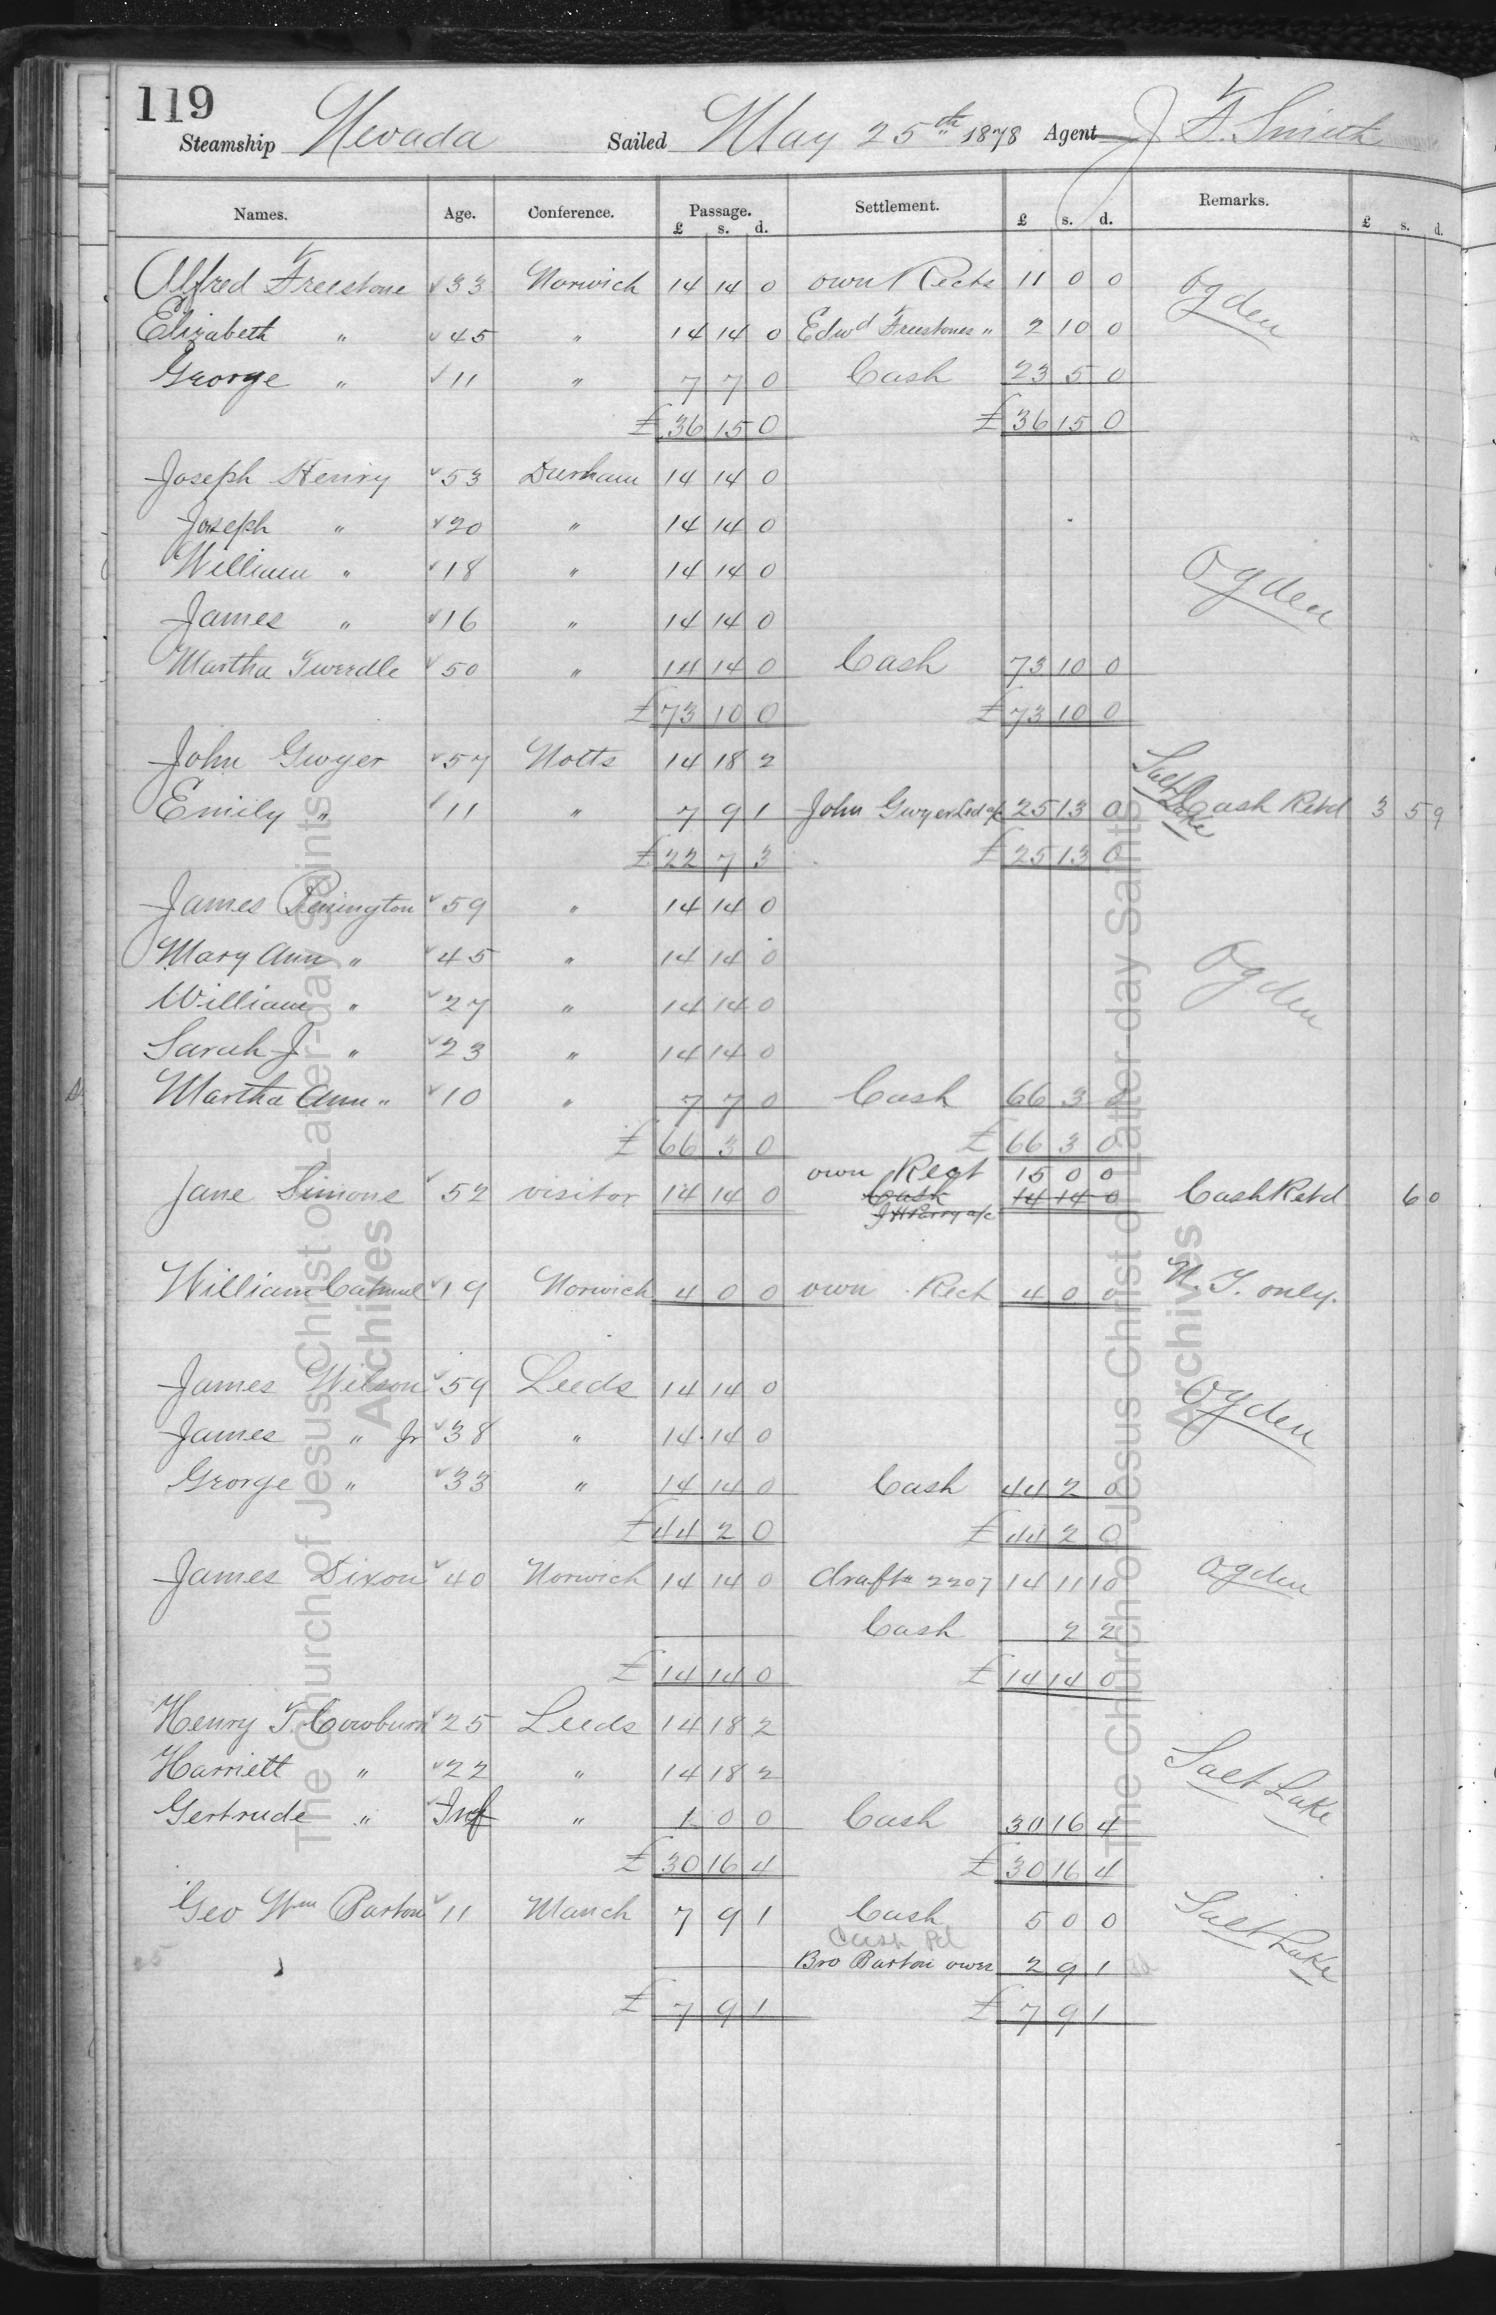 119
Steamship Nevada Sailed May 25th 1878 Agent J. F. Smith
Names. Age. Conference. Passage. Settlement. Remarks.
£ s. d. £ s. d. £ s. d.
Alfred Freestone 33 Norwich 14 14 0 own Rects 11 0 0 Ogden
Elizabeth " 45 " 14 14 0 Edwd Freestones " 2 10 0
George " 11 " 7 7 0 Cash 23 5 0
£ 36 15 0 £ 36 15 0
Joseph Henry 53 Durham 14 14 0
Joseph " 20 " 14 14 0
William " 18 " 14 14 0 Ogden
James " 16 " 14 14 0
Martha Tweedle 50 " 14 14 0 Cash 73 10 0
£ 73 10 0 £ 73 10 0
John Gwyer 57 Notts 14 18 2 Salt Lake
Emily " 11 " 7 9 1 John Gwyer Led a/c 25 13 0 Cash Retd 3 5 9
£ 22 7 3 £ 25 13 0
James Penington 59 " 14 14 0
Mary Ann " 45 " 14 14 0 Ogden
William " 27 " 14 14 0
Sarah J " 23 " 14 14 0
Martha Ann " 10 " 7 7 0 Cash 66 3 0
£ 66 3 0 £ 66 3 0
own Rect 15 0 0
Jane Simons 52 visitor 14 14 0 Cash 14 14 0 Cash Retd 6 0
J H Parry a/c
William Catmul 19 Norwich 4 0 0 own Rect 4 0 0 N. Y. only.
James Wilson 59 Leeds 14 14 0 Ogden
James " Jr 38 " 14 14 0
George " 33 " 14 14 0 Cash 44 2 0
£ 44 2 0 £ 44 2 0
James Dixon 40 Norwich 14 14 0 draft 2207 14 11 10 Ogden
Cash 2 2
£ 14 14 0 £ 14 14 0
Henry T. Cowburn 25 Leeds 14 18 2
Harriett " 22 " 14 18 2 Salt Lake
Gertrude " Inf " 1 0 0 Cash 30 16 4
£ 30 16 4 £ 30 16 4
Geo Wm Barton 11 Manch 7 9 1 Cash 5 0 0 Salt Lake
Cash Pd
Bro Barton owes 2 9 1
£ 7 9 1 £ 7 9 1
The Church of Jesus Christ of Latter-day Saints
Archives
The Church of Jesus Christ of Latter-day Saints
Archives